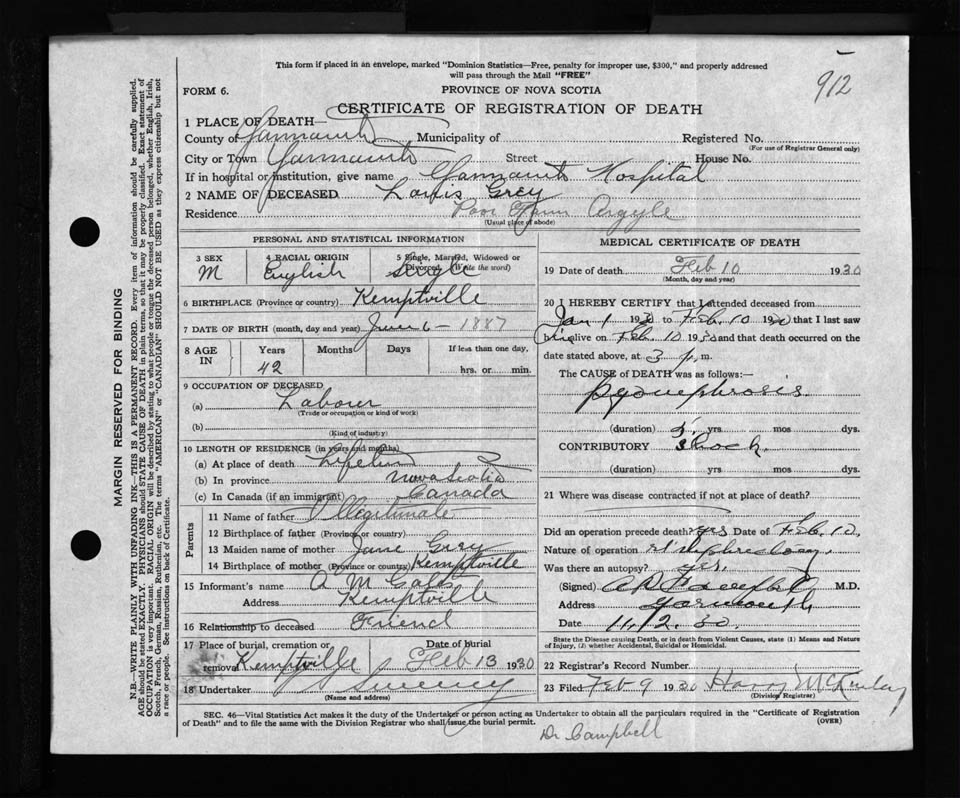 912
This form if placed in an envelope, marked "Dominion Statistics—Free, penalty for improper use, $300," and properly addressed
will pass through the Mail "FREE"
FORM 6. PROVINCE OF NOVA SCOTIA
CERTIFICATE OF REGISTRATION OF DEATH
1 PLACE OF DEATH—
County of Yarmouth Municipality of Registered No.
(For use of Registrar General only)
City or Town Yarmouth Street House No.
If in hospital or institution, give name Yarmouth Hospital
2 NAME OF DECEASED Louis Grey
Residence Poor Farm Argyle
(Usual place of abode)
PERSONAL AND STATISTICAL INFORMATION
3 SEX 4 RACIAL ORIGIN 5 Single, Married, Widowed or Divorced (Write the word)
M English Single
6 BIRTHPLACE (Province or country) Kemptville
7 DATE OF BIRTH (month, day and year) June 6 - 1887
8 AGE IN Years Months Days If less than one day,
42 hrs. or min.
9 OCCUPATION OF DECEASED
(a) Labourer
(Trade or occupation or kind of work)
(b)
(Kind of industry)
10 LENGTH OF RESIDENCE (in years and months)
(a) At place of death Lifetime
(b) In province Nova Scotia
(c) In Canada (if an immigrant) Canada
Parents
11 Name of father Illegitimate
12 Birthplace of father (Province or country)
13 Maiden name of mother Jane Grey
14 Birthplace of mother (Province or country) Kemptville
15 Informant's name A M Gates
Address Kemptville
16 Relationship to deceased Friend
17 Place of burial, cremation or removal Date of burial
Kemptville Feb 13 1930
18 Undertaker Sweeney
(Name and address)
MEDICAL CERTIFICATE OF DEATH
19 Date of death Feb 10 1930
(Month, day and year)
20 I HEREBY CERTIFY that I attended deceased from
Jan 1 1930 to Feb. 10 1930 that I last saw
him alive on Feb. 10 1930 and that death occurred on the
date stated above, at 3 p.m.
The CAUSE of DEATH was as follows:—
Pyonephrosis
(duration) yrs mos. dys.
CONTRIBUTORY Shock.
(duration) yrs. mos. dys.
21 Where was disease contracted if not at place of death?
Did an operation precede death? yes Date of Feb. 10,
Nature of operation Nephrectomy.
Was there an autopsy? yes.
(Signed) Campbell M.D.
Address Yarmouth,
Date 11/2.30.
State the Disease causing Death, or in death from Violent Causes, state (1) Means and Nature
of Injury, (2) whether Accidental, Suicidal or Homicidal.
22 Registrar's Record Number
23 Filed Feb 9 1930 Harry McKinley
(Division Registrar)
SEC. 46—Vital Statistics Act makes it the duty of the Undertaker or person acting as Undertaker to obtain all the particulars required in the "Certificate of Registration
of Death" and to file the same with the Division Registrar who shall issue the burial permit. (OVER)
Dr Campbell
MARGIN RESERVED FOR BINDING
N.B.—WRITE PLAINLY WITH UNFADING INK—THIS IS A PERMANENT RECORD. Every item of information should be carefully supplied.
AGE should be stated EXACTLY. PHYSICIANS should STATE CAUSE OF DEATH in plain terms, so that it may be properly classified. Exact statement of
OCCUPATION is very important. RACIAL ORIGIN will be described by stating to what people or tongue the deceased person belonged, whether English, Irish,
Scotch, French, German, Russian, Ruthenian, etc. The terms "AMERICAN" or "CANADIAN" SHOULD NOT BE USED as they express citizenship but not
a race or people. See instructions on back of Certificate.